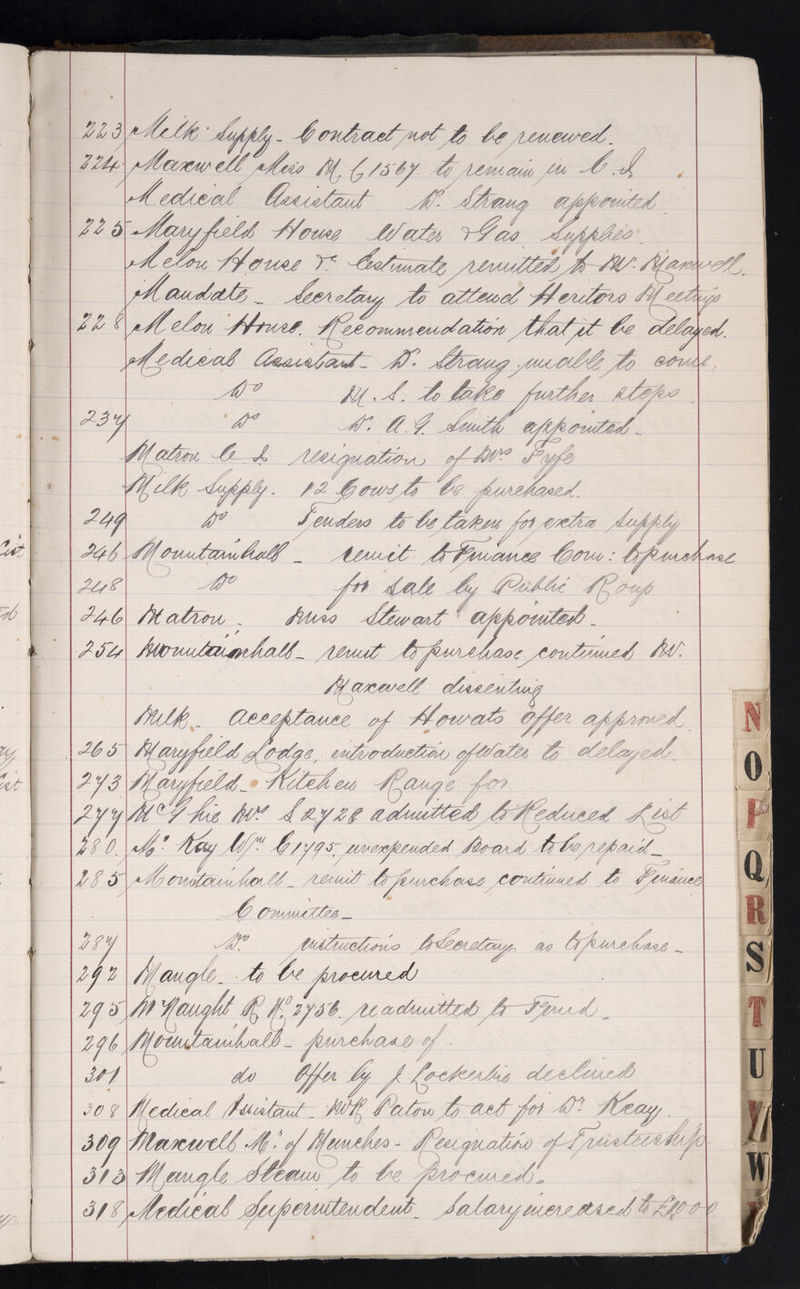 223 Milk Supply - Contract not to be renewed.
224 Maxwell Miss M. C 1567 to remain in C. I.
Medical Assistant Dr. Strang appointed
225 Maryfield House Water & Gas Supplies
Melon House &c. Estimate remitted to Mr. Maxwell.
Mandate - Secretary to attend Heritors Meetings
228 Melon House. Recommendation that it be delayed.
Medical Assistant - Dr. Strang unable to come,
Do M. S. to take further steps
237 Do Dr. A. G. Smith appointed -
Matron C. I. resignation of Mrs Fyfe
Milk Supply. 12 Cows to be purchased.
249 Do Tenders to be taken for extra Supply
246 Mountainhall - remit to Finance Com: to purchase
248 Do for Sale by Public Roup
246 Matron - Miss Stewart appointed -
254 Mountainhall - remit to purchase continued Mr.
Maxwell dissenting
Milk - Acceptance of Howats offer approved
265 Maryfield Lodge, introduction of Water to delayed.
273 Maryfield - Kitchen Range for
277 McGhie Mrs S 2728 admitted to Reduced List
280. Mc. Kay Wm C 1795, unexpended Board to be repaid -
285 Mountainhall - remit to purchase continued to Finance
Committee -
287 Do. instructions to Secretary as to purchase -
292 Mangle - to be procured
295 McNaught R No. 2756. readmitted to Fund.
296 Mountainhall - purchase of.
301 do Offer by J Lockerbie declined
308 Medical Assistant - Paton to act for Dr. Keay.
309 Maxwell Mr. of Munches - Resignation of Trusteeship
313 Mangle Steam to be procured.
318 Medical Superintendent - Salary increased to £1000
N
O
P
Q
R
S
T
U
V
W